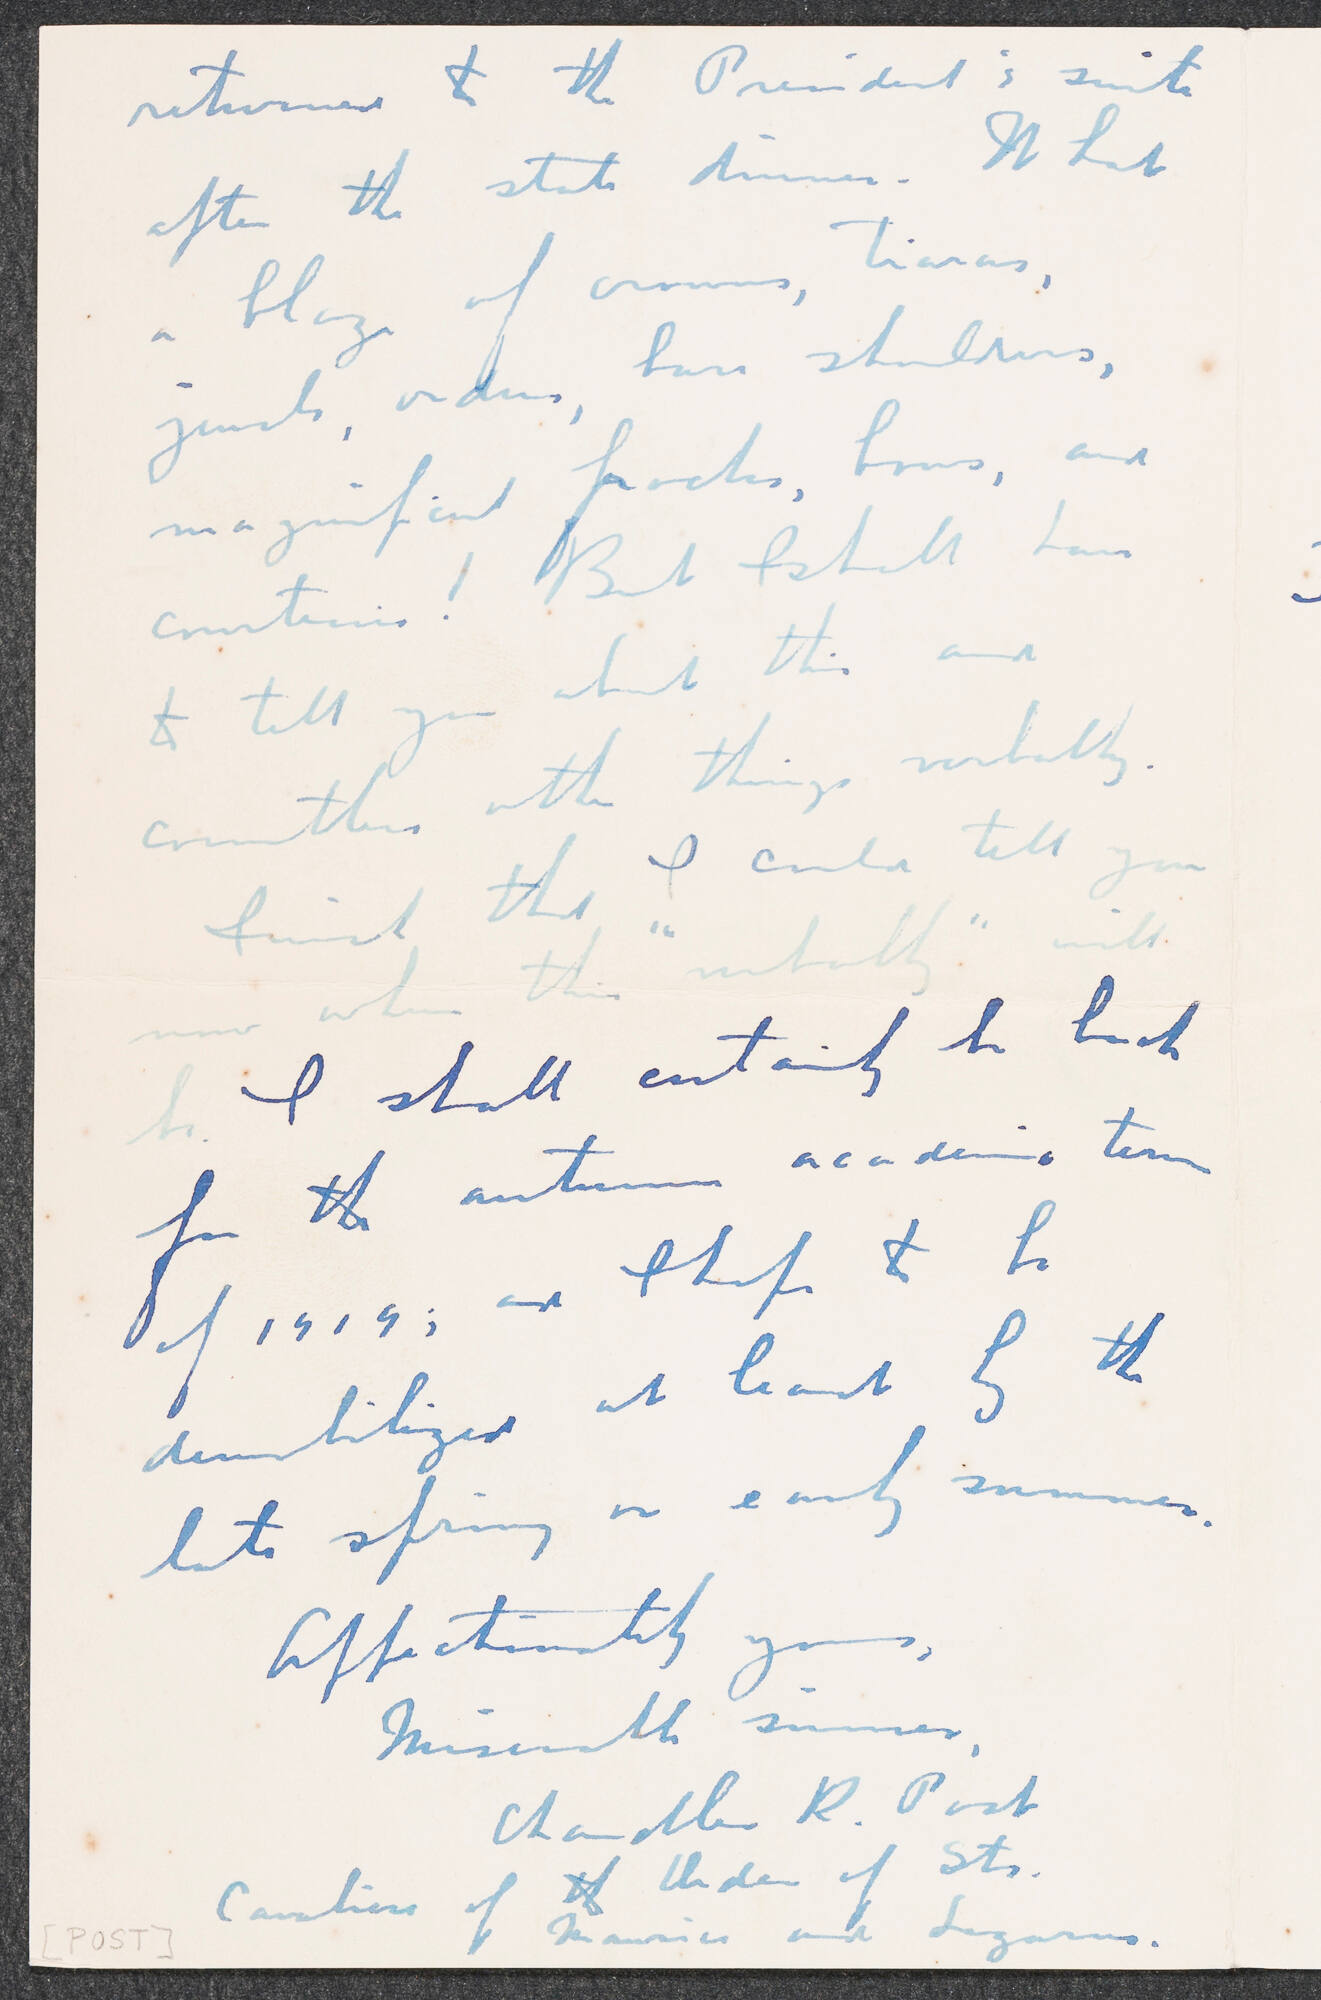 returned to the President's suite
after the state dinner. What
a blaze of crowns, tiaras,
jewels, orders, bare shoulders,
magnificent frocks, bows, and
courtesies! But I shall have
to tell you about this and
countless other things verbally.
I wish that I could tell you
now when this "verbally" will
be. I shall certainly be back
for the autumn academic term
of 1919; and I hope to be
demobilized at least by the
late spring or early summer.
Affectionately yours,
Miserable sinner,
Chandler R. Post
Cavaliere of the Order of Sts.
Maurice and Lazarus.
[POST]